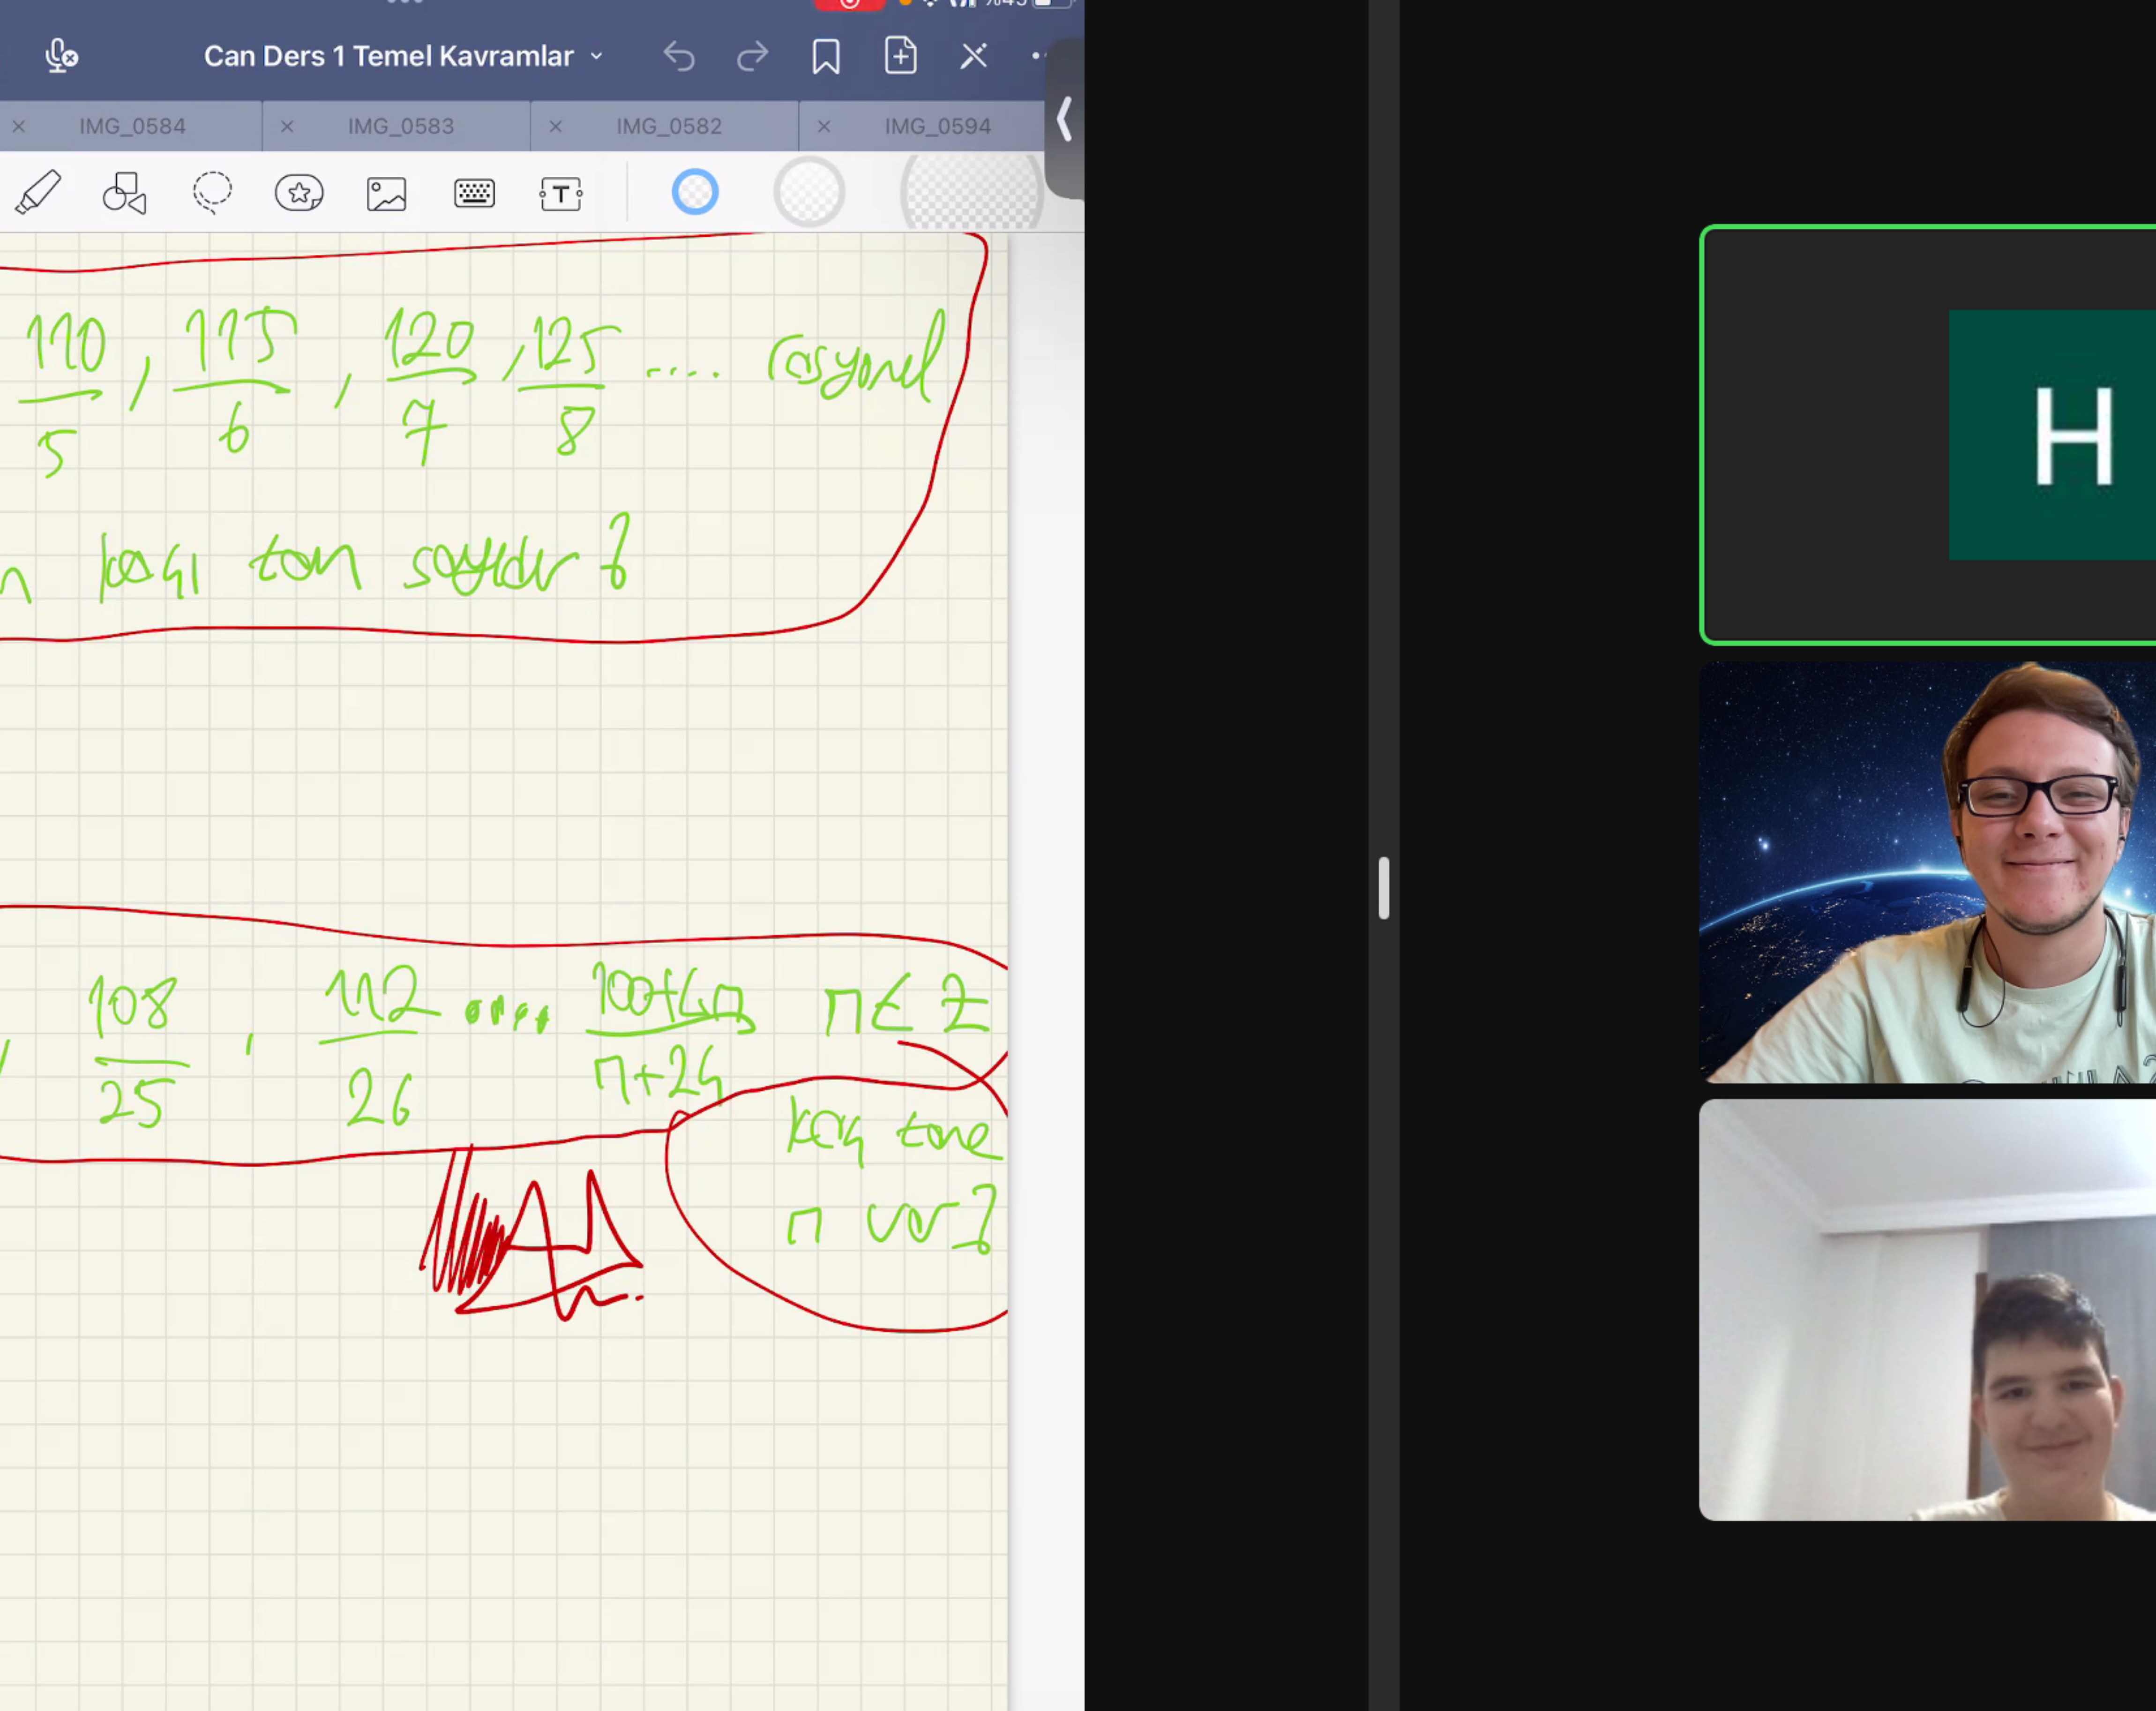 %45
Can Ders 1 Temel Kavramlar
IMG_0584 IMG_0583 IMG_0582 IMG_0594
T
110/5 , 115/6 , 120/7 , 125/8 .... rasyonel
n kaçı tam sayıdır?
108/25 , 112/26 .... 100+4n/n+24 n ∈ Z
kaç tane
n var?
H